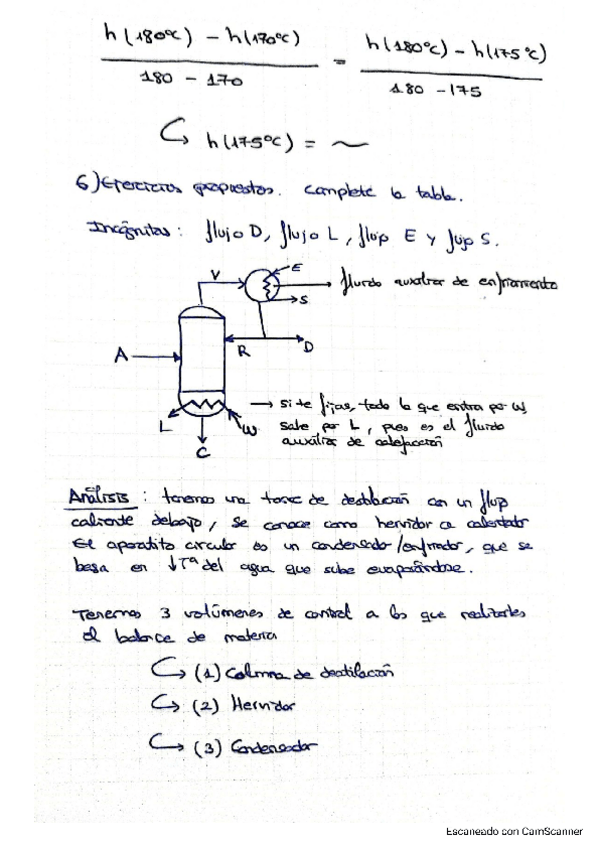 h(180ºC) - h(170ºC) / 180 - 170 = h(180ºC) - h(175ºC) / 180 - 175
h(175ºC) = ~
6) Ejercicios propuestos. Complete la tabla.
Incógnitas: flujo D, flujo L, flujo E y flujo S.
V
E
fluido auxiliar de enfriamiento
S
A
R
D
si te fijas, todo lo que entra por W,
sale por L, pues es el fluido
auxiliar de calefacción
L
W
C
Análisis: tenemos una torre de destilación con un flujo
caliente debajo, se conoce como hervidor o calentador
El aparatito circular es un condensador/enfriador, que se
basa en ↓Tª del agua que sube evaporándose.
Tenemos 3 volúmenes de control a los que realizarles
el balance de materia
(1) Columna de destilación
(2) Hervidor
(3) Condensador
Escaneado con CamScanner